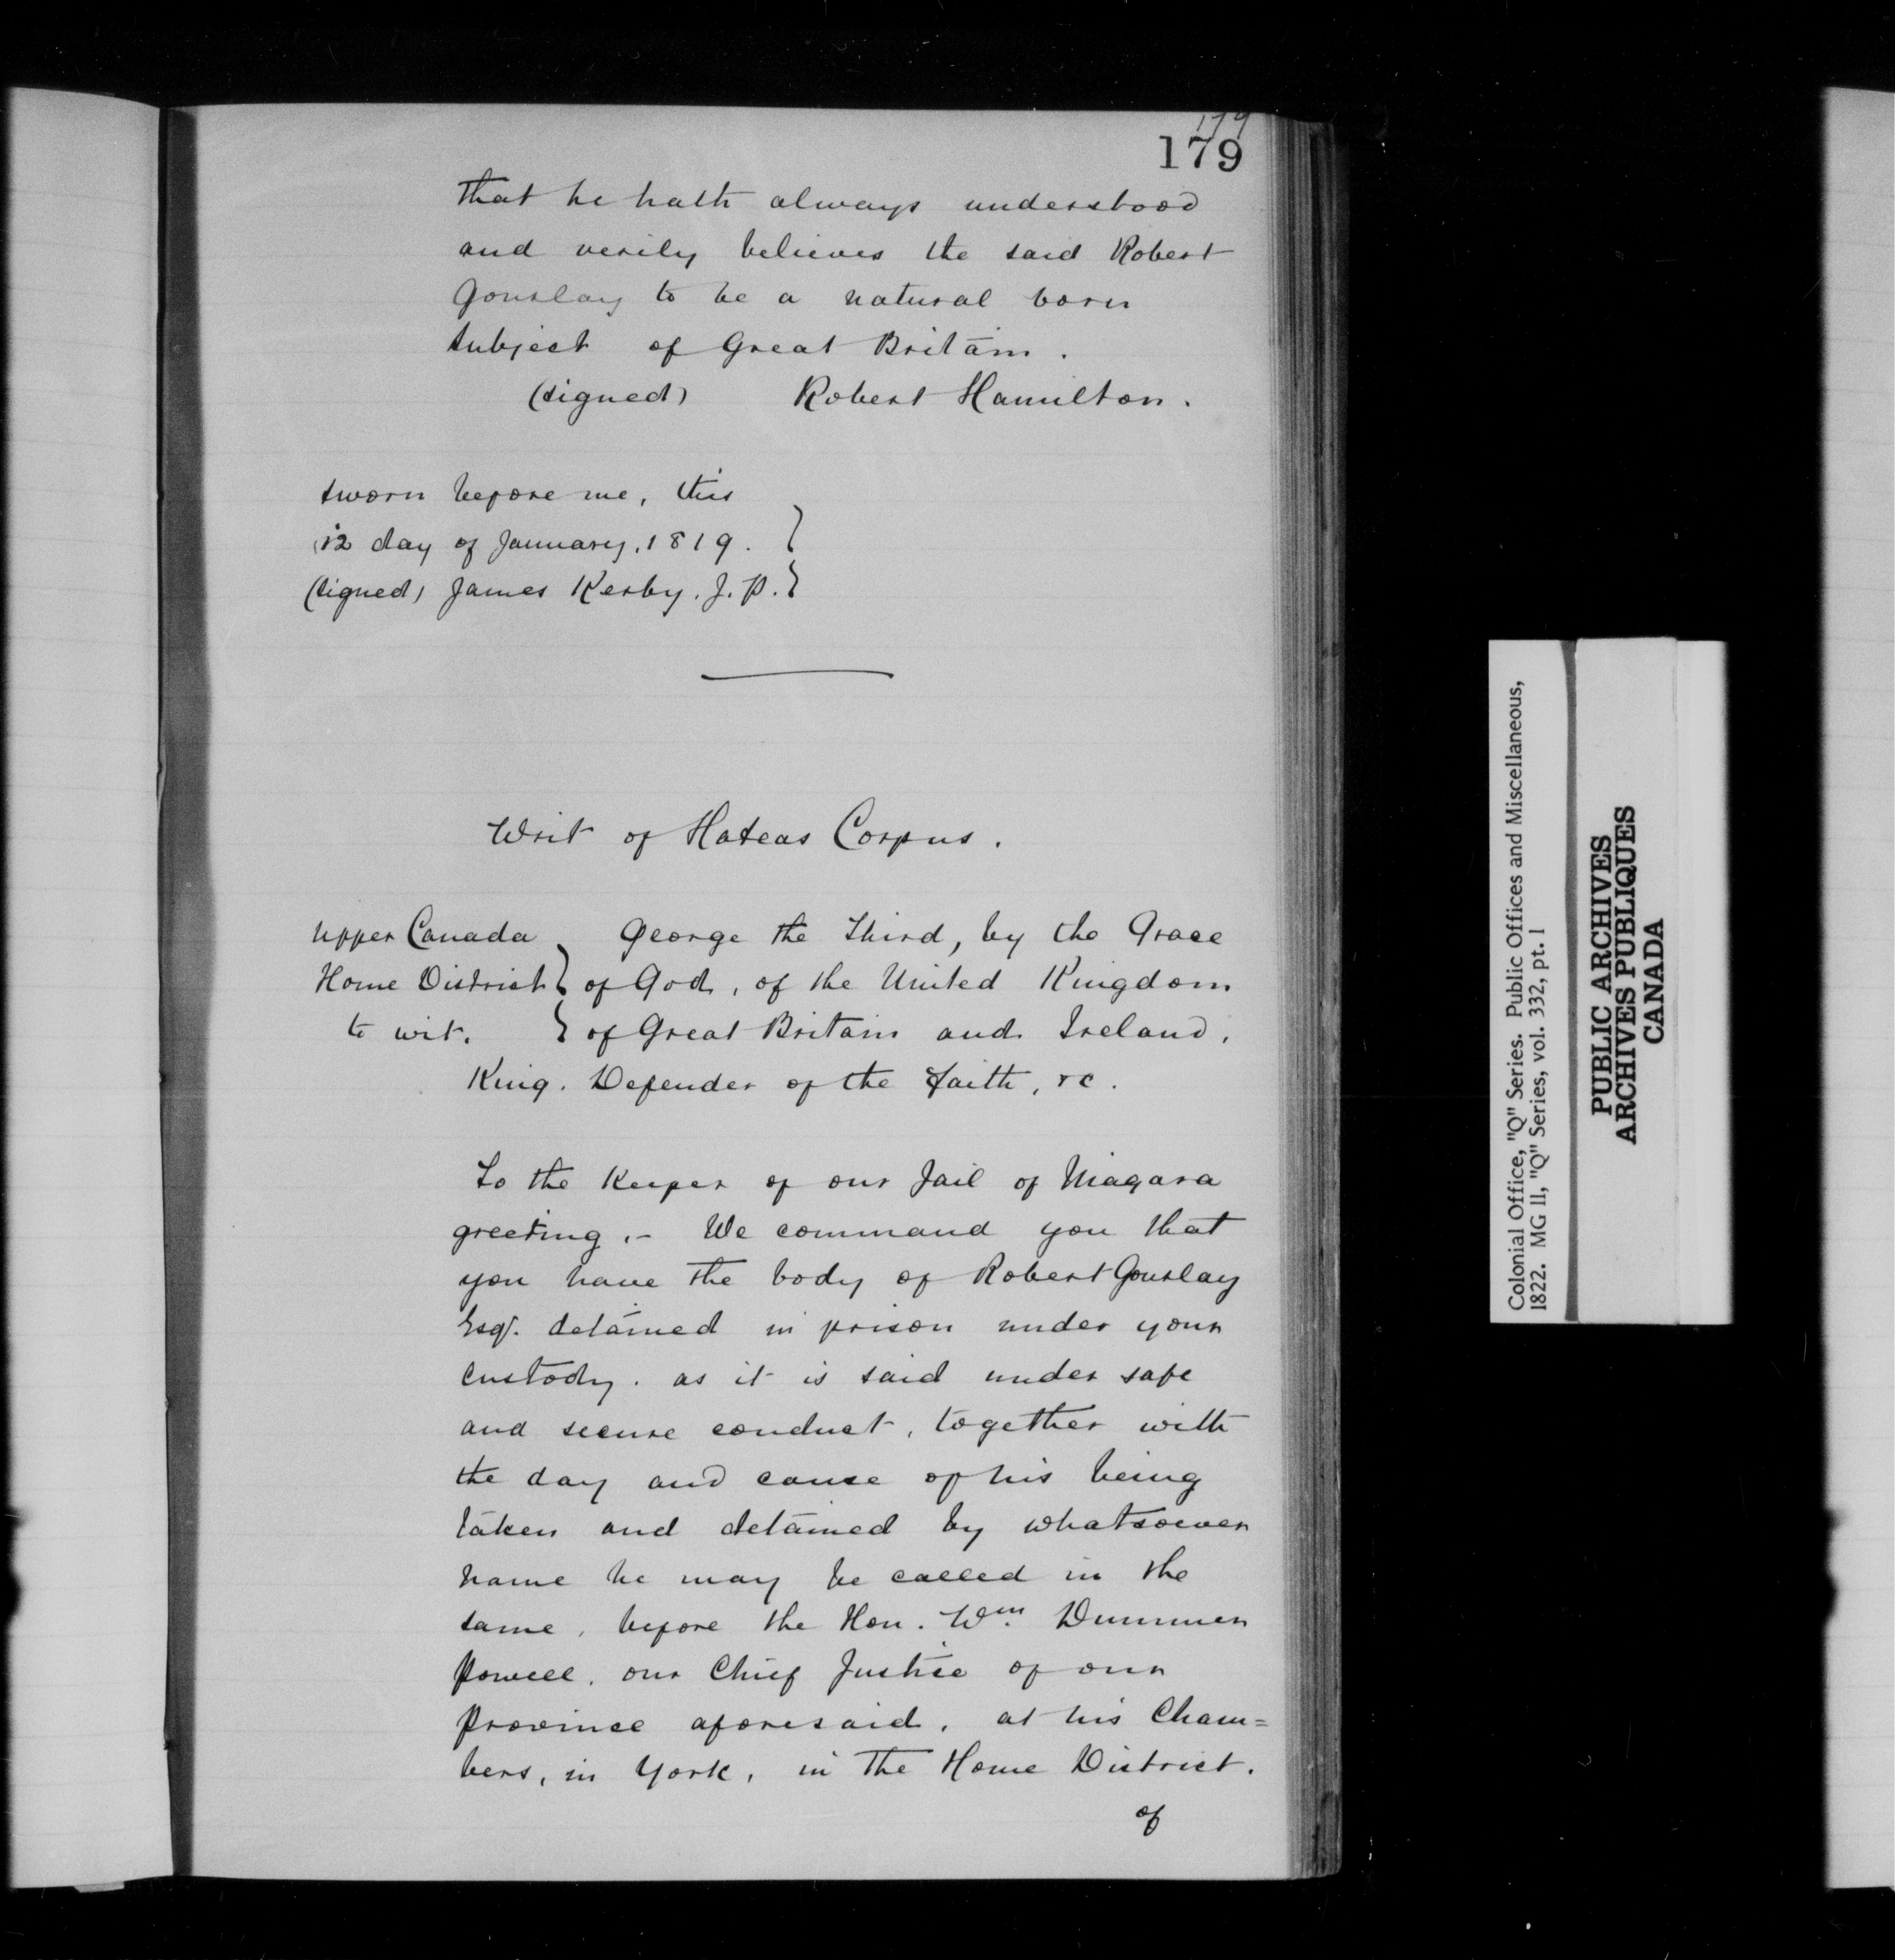 179
179
that he hath always understood
and verily believes the said Robert
Gourlay to be a natural born
subject of Great Britain.
(signed) Robert Hamilton.
sworn before me, this
12 day of January, 1819.
(signed) James Kerby, J. P.
Writ of Habeas Corpus.
Upper Canada
Home District
to wit.
George the Third, by the Grace
of God, of the United Kingdom
of Great Britain and Ireland,
King, Defender of the Faith, &c.
To the Keeper of our Jail of Niagara
greeting.- We command you that
you have the body of Robert Gourlay
Esqr. detained in prison under your
custody, as it is said under safe
and secure conduct, together with
the day and cause of his being
taken and detained by whatsoever
name he may be called in the
same, before the Hon. Wm. Dummer
Powell, our Chief Justice of our
Province aforesaid, at his Cham=
bers, in York, in the Home District,
of
Colonial Office, "Q" Series. Public Offices and Miscellaneous,
1822. MG 11, "Q" Series, vol. 332, pt. 1
PUBLIC ARCHIVES
ARCHIVES PUBLIQUES
CANADA